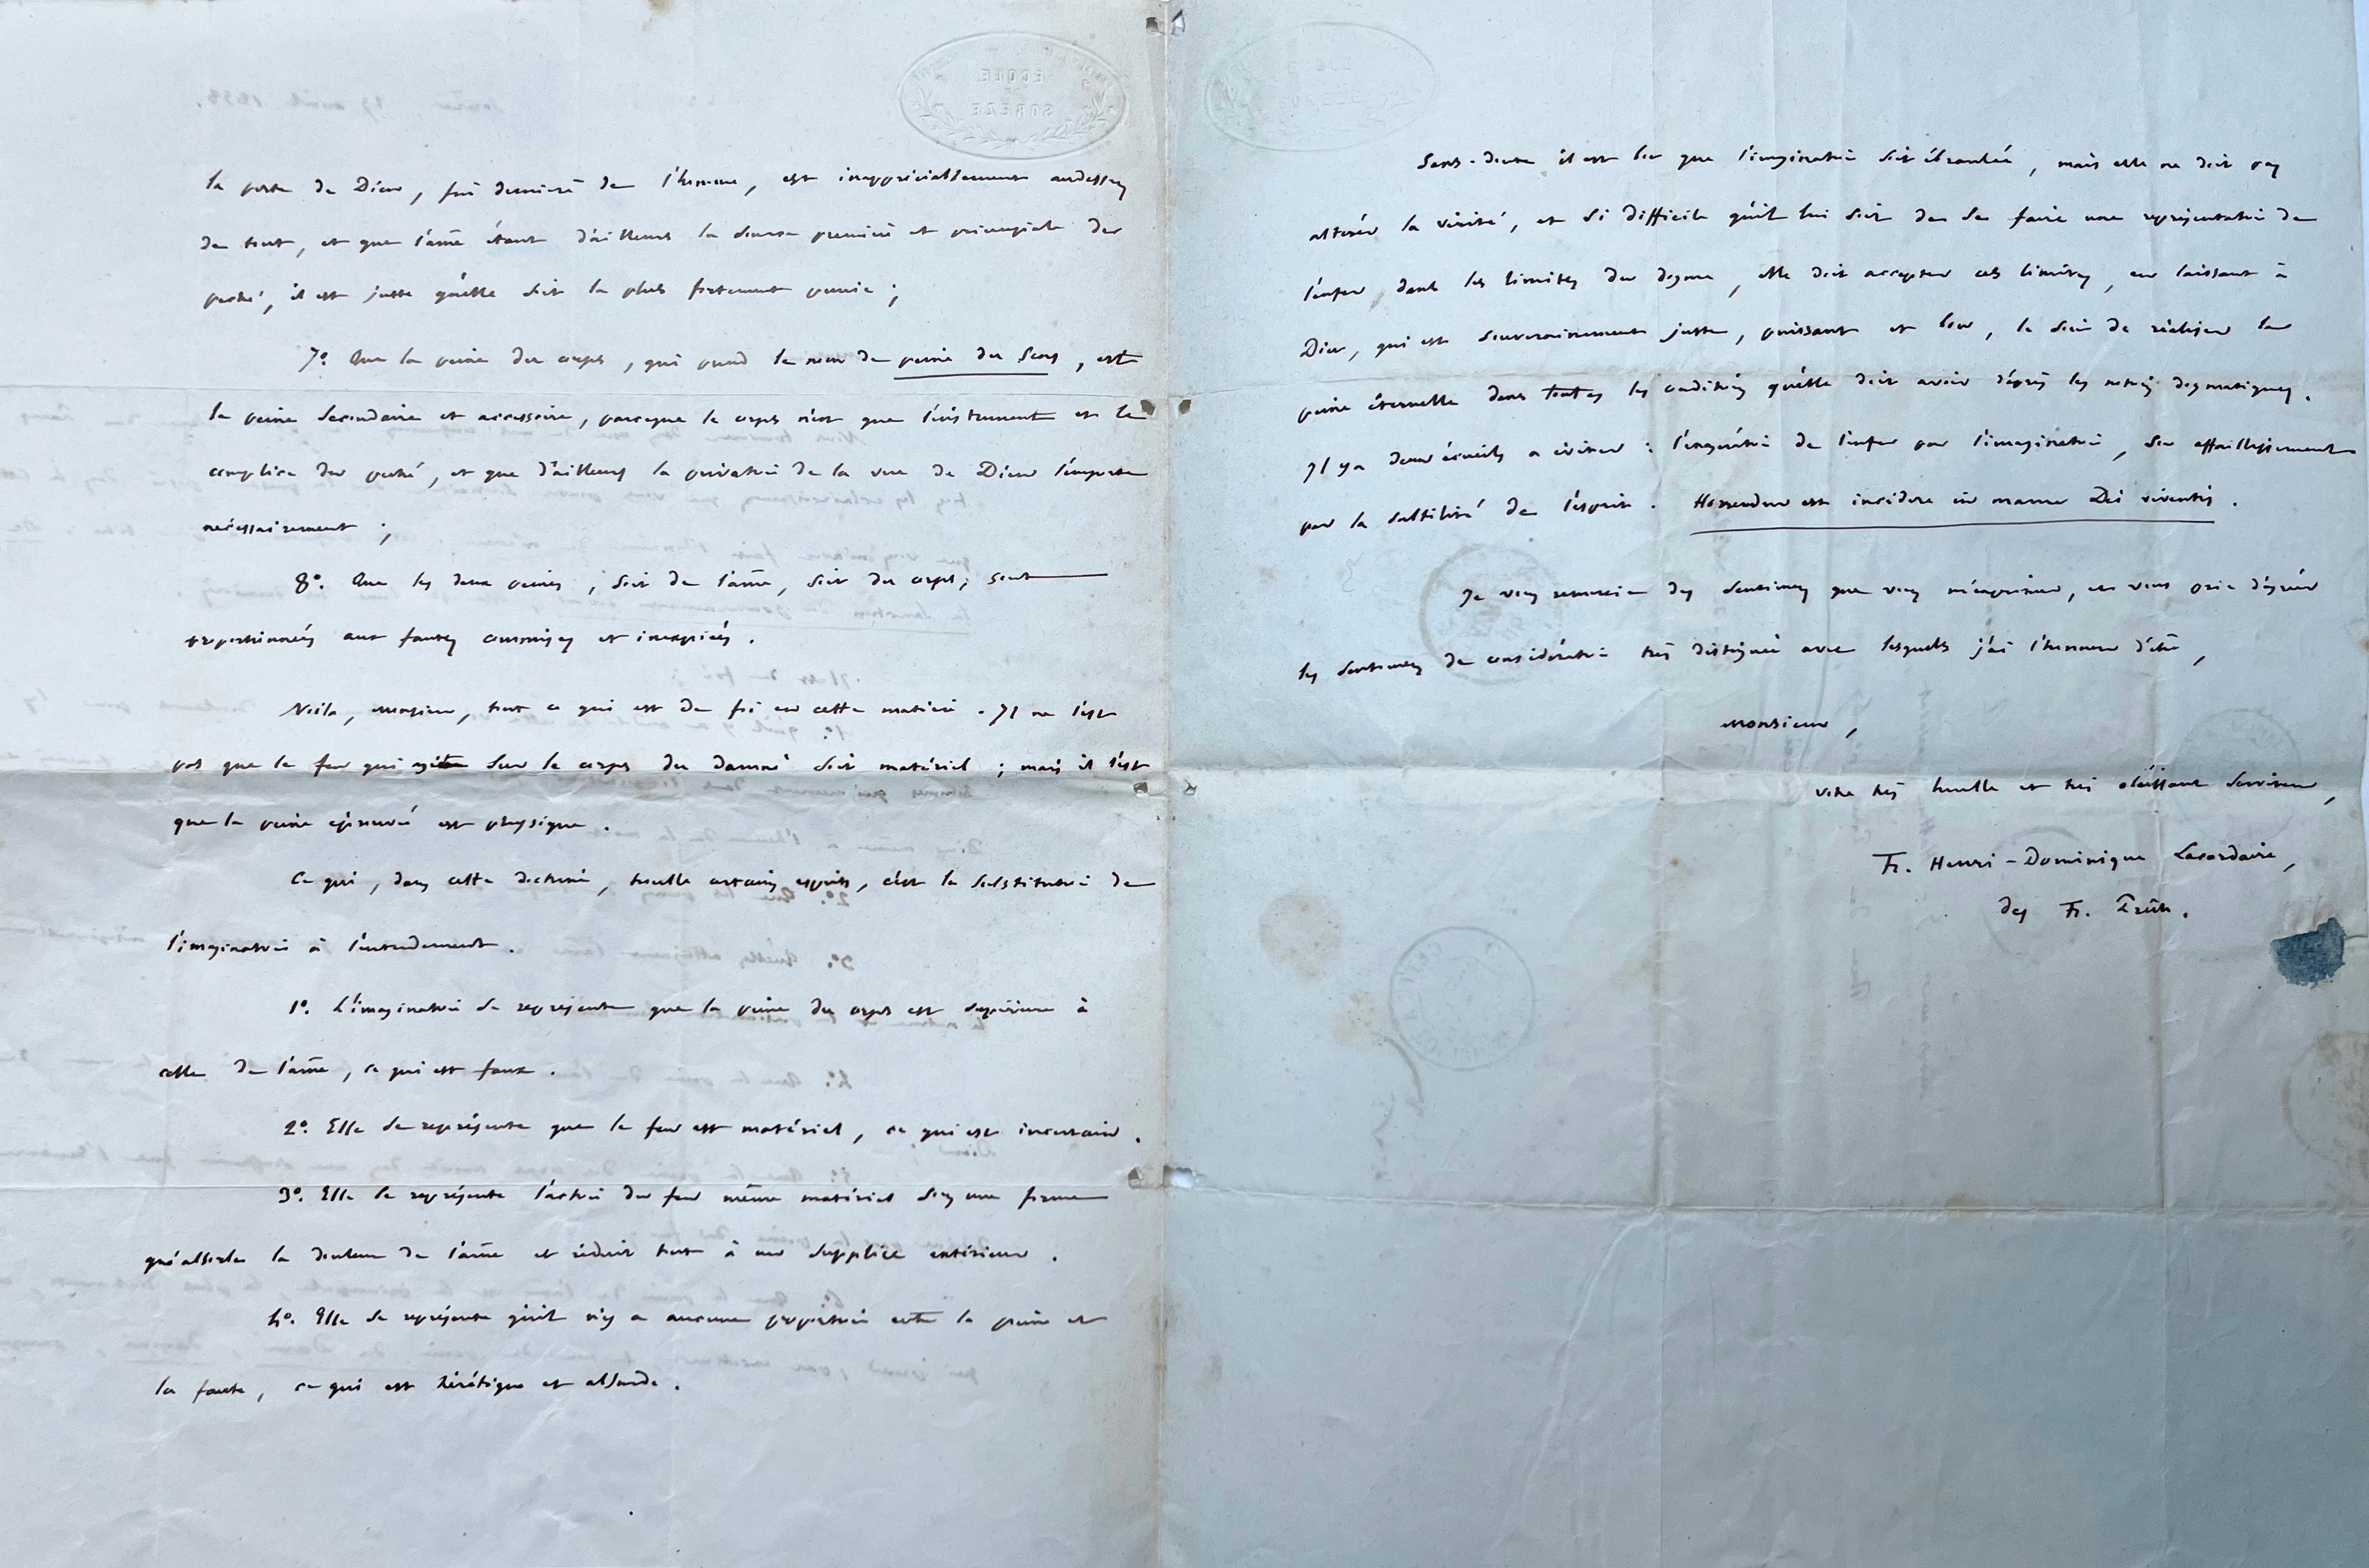 ÉCOLE
DE
SORÈZE
la perte de Dieu, fin dernière de l'homme, est inappréciablement audessus
de tout, et que l'âme étant d'ailleurs la source première et principale du
péché, il est juste qu'elle soit la plus fortement punie ;
7°. Que la peine du corps, qui prend le nom de peine du sens, est
la peine secondaire et accessoire, parceque le corps n'est que l'instrument et le
complice du péché, et que d'ailleurs la privation de la vue de Dieu l'emporte
nécessairement ;
8°. Que les deux peines, soit de l'âme, soit du corps, sont
proportionnées aux fautes commises et inexpiées.
Voilà, monsieur, tout ce qui est de foi en cette matière. Il ne l'est
pas que le feu qui agite sur le corps du damné soit matériel ; mais il l'est
que la peine éprouvée est physique.
Ce qui, dans cette doctrine, trouble certains esprits, c'est la substitution de
l'imagination à l'entendement.
1°. L'imagination se représente que la peine du corps est supérieure à
celle de l'âme, ce qui est faux.
2°. Elle se représente que le feu est matériel, ce qui est incertain.
3°. Elle se représente l'action du feu même matériel sous une forme
qui absorbe la douleur de l'âme et réduit tout à un supplice extérieur.
4°. Elle se représente qu'il n'y a aucune proportion entre la peine et
la faute, ce qui est hérétique et absurde.
Sans-doute il est bon que l'imagination soit ébranlée, mais elle ne doit pas
altérer la vérité, et si difficile qu'il lui soit de se faire une représentation de
l'enfer dans les limites du dogme, elle doit accepter ces limites, en laissant à
Dieu, qui est souverainement juste, puissant et bon, le soin de réaliser la
peine éternelle dans toutes les conditions qu'elle doit avoir d'après les notions dogmatiques.
Il y a deux écueils à éviter : l'exagération de l'enfer par l'imagination, son affaiblissement
par la subtilité de l'esprit. Horrendum est incidere in manus Dei viventis.
Je vous remercie des sentimens que vous m'exprimez, et vous prie d'agréer
les sentimens de considération très distinguée avec lesquels j'ai l'honneur d'être,
Monsieur,
votre très humble et très obéissant serviteur,
Fr. Henri-Dominique Lacordaire,
des Fr. Prêch.